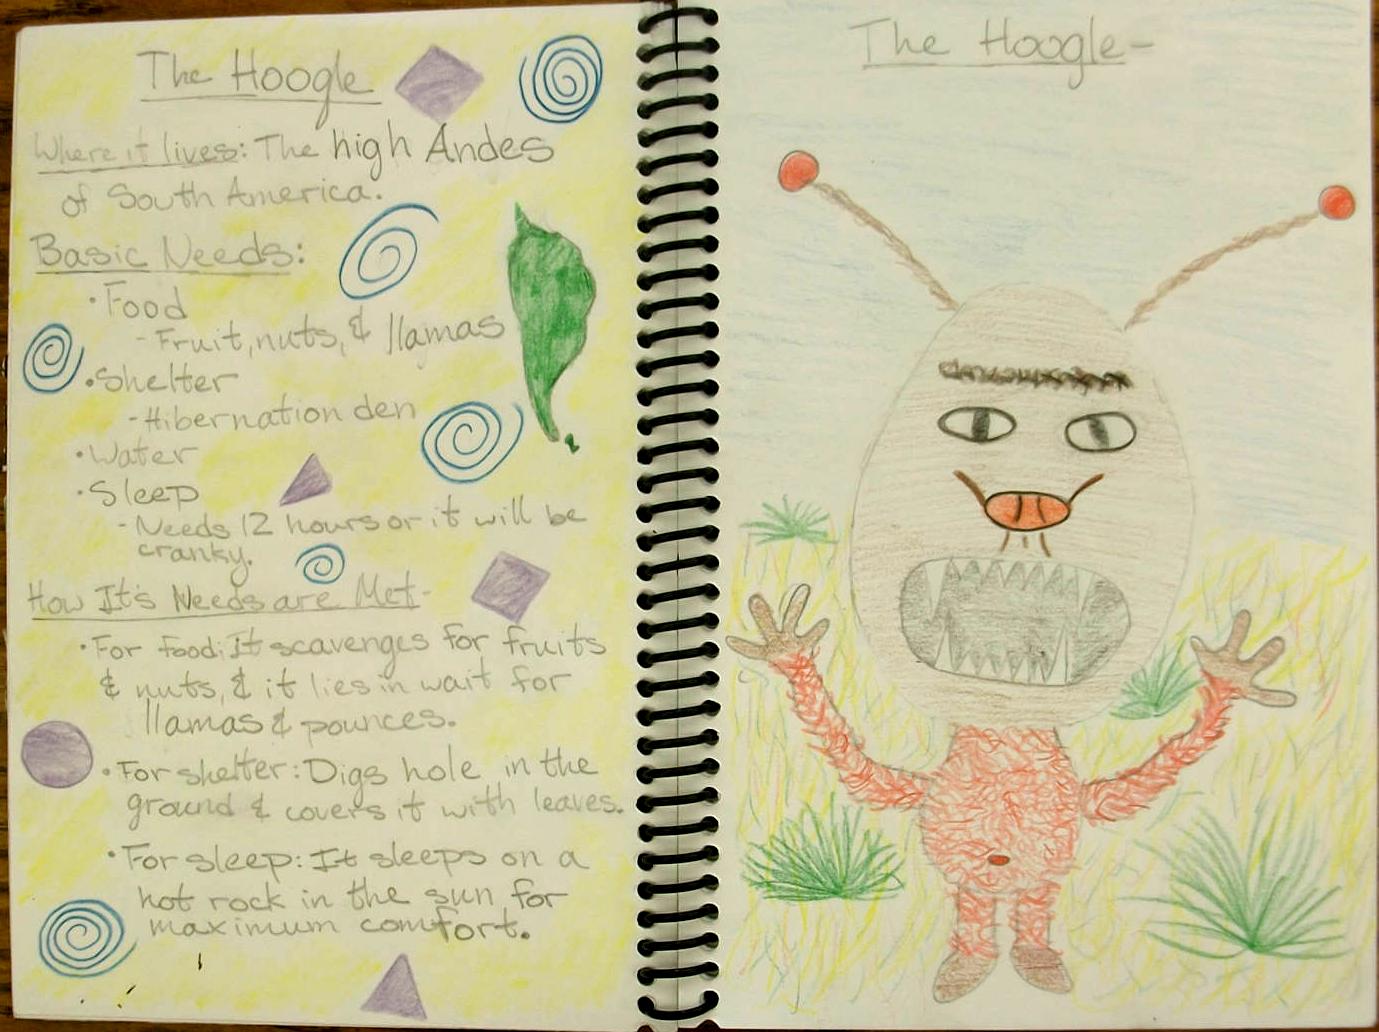 The Hoogle
Where it lives: The high Andes
of South America.
Basic Needs:
• Food
- Fruit, nuts, & llamas
• Shelter
- Hibernation den
• Water
• Sleep
- Needs 12 hours or it will be
cranky.
How It's Needs are Met-
• For food: It scavenges for fruits
& nuts, & it lies in wait for
llamas & pounces.
• For shelter: Digs hole in the
ground & covers it with leaves.
• For sleep: It sleeps on a
hot rock in the sun for
maximum comfort.
The Hoogle-